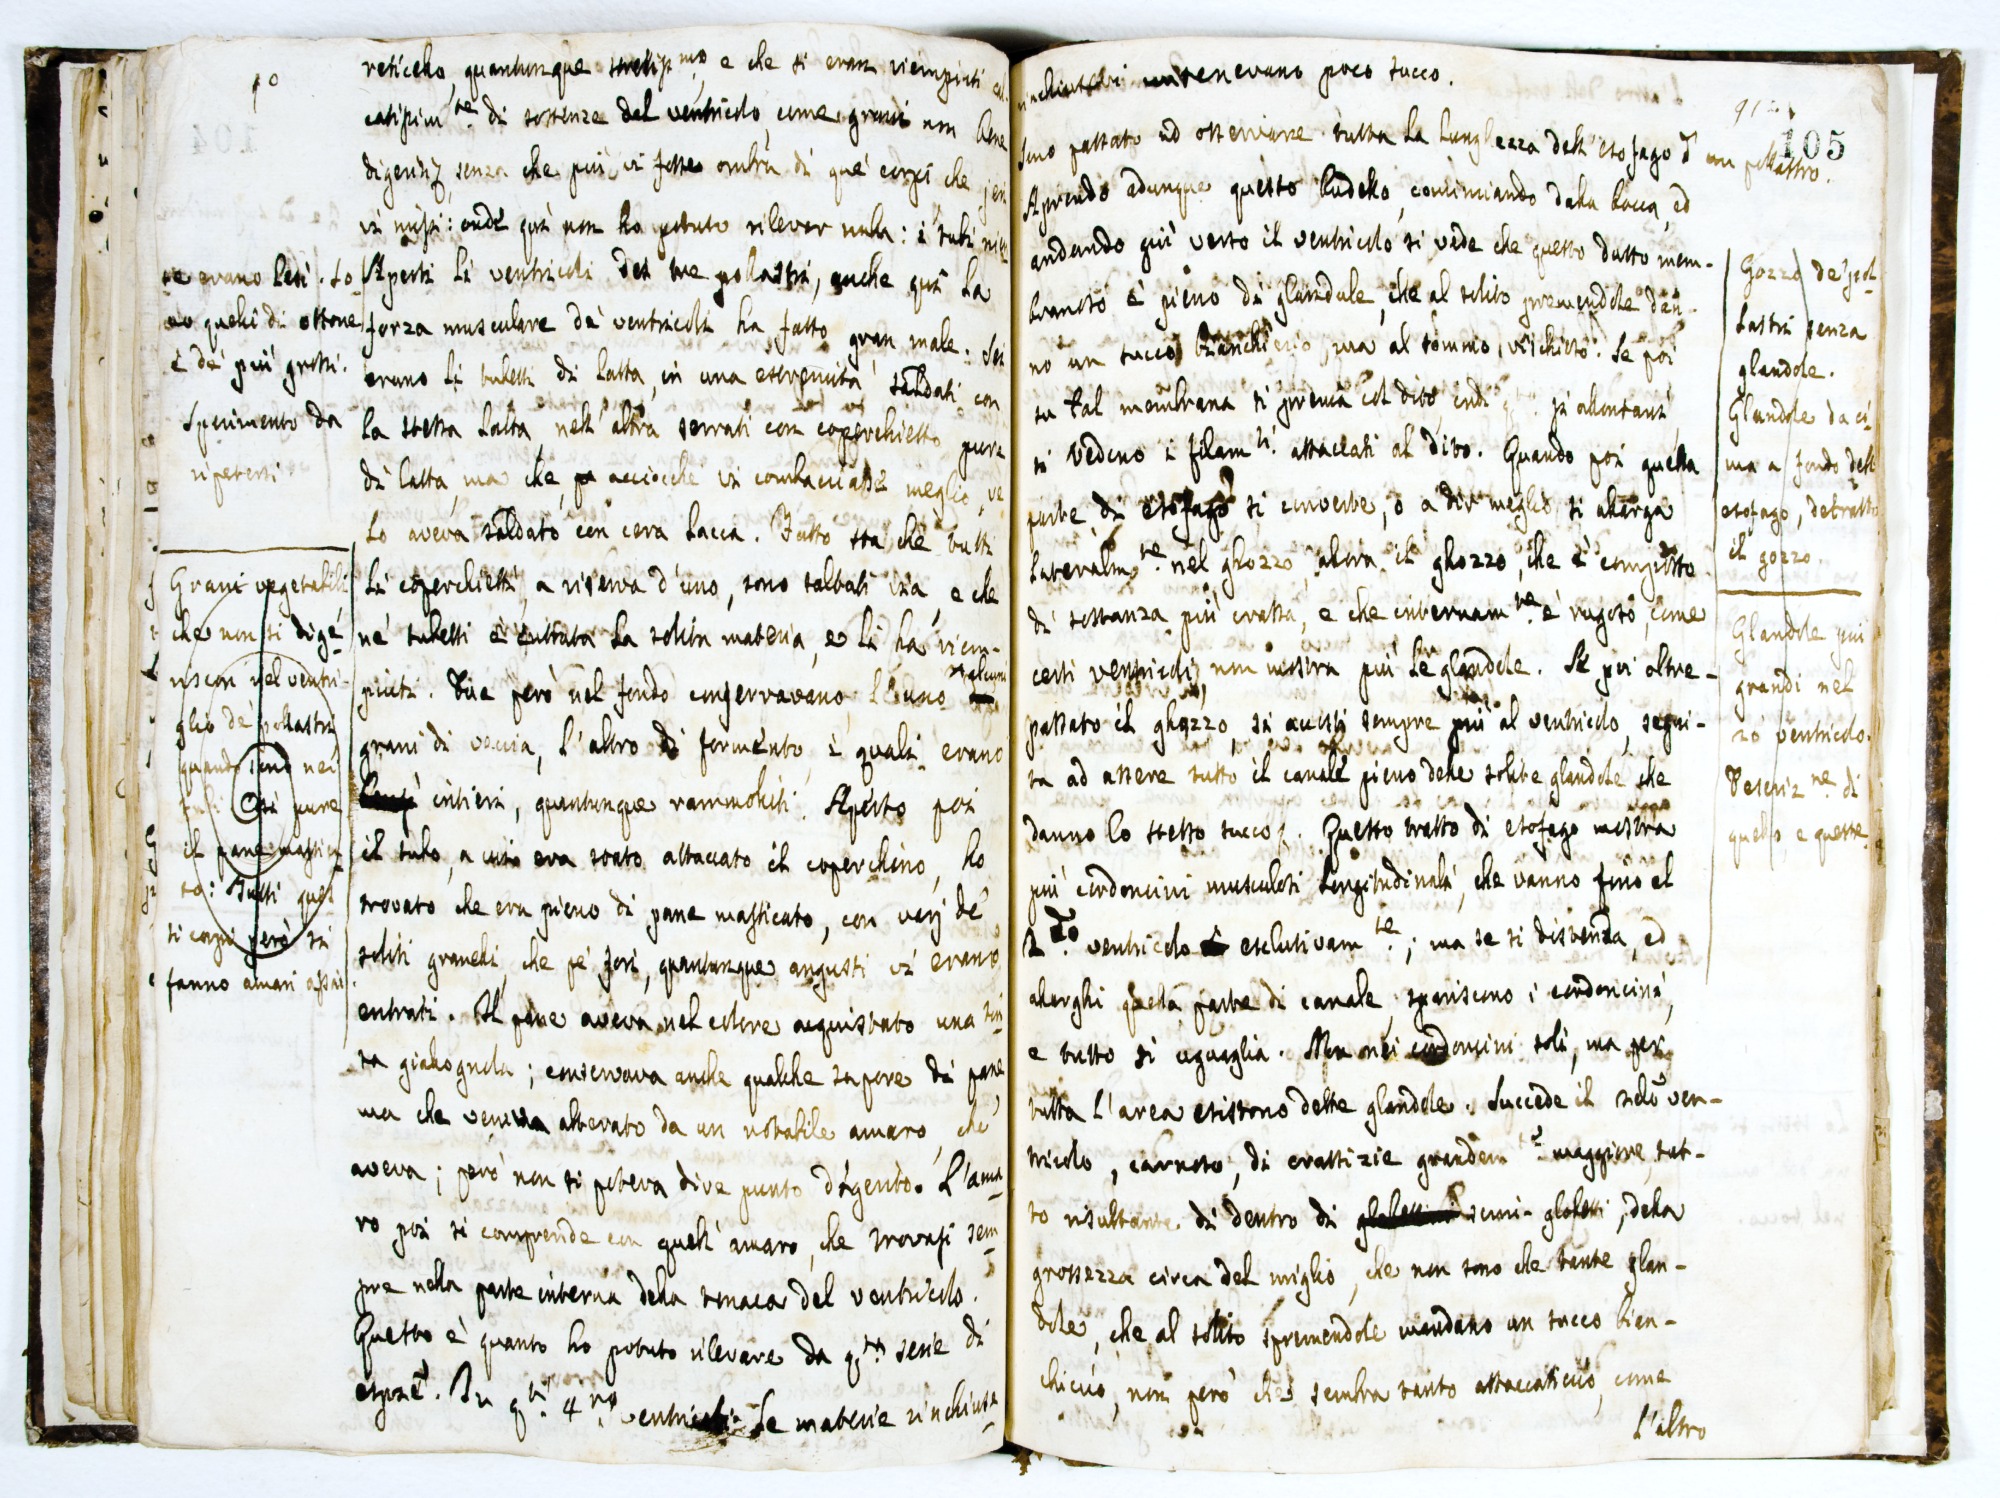 90
reticello, quantunque strettissmo, e che si eran riempiuti
catissimte di sostanze del ventricolo, come grani non bene
digeriti, senza che più vi fosse ombra di que' corpi che jeri
vi misi: onde quì non ho potuto rilever nulla: i tubi
se erano lesi.
no quelli di ottone
è de' più grossi.
Sperimento da
ripetersi.
Aperti li ventricoli dei tre polastri, anche quì la
forza musculare de' ventricoli ha fatto gran male: Sei
erano li tubetti di latta, in una estremità saldati con
la stessa latta, nell'altra serrati con coperchietto pura
di latta, ma che, acciocchè vi combacciasse meglio, ve
lo aveva saldato con cera lacca. Fatto sta che tutti
li coperchietti, a riserva d'uno, sono saltati via, e che
ne' tubetti è entrata la solita materia, e li ha riem-
piuti. Due però nel fondo conservavano, l'uno alcuni
grani di veccia, l'altro di formento, i quali erano
intieri, quantunque rammolliti. Aperto poi
il tubo, a cui era stato attaccato il coperchino, ho
trovato che era pieno di pane masticato, con varj de'
soliti granelli, che pe' fori, quantunque angusti vi erano
entrati. Il pane aveva nel colore acquistato una tin
ta giallognola; conservava anche qualche sapore di pane,
ma che veniva alterato da un notabile amaro, che
aveva; però non si poteva dire punto digerito. L'ama
ro poi si comprende con quell'amaro, che trovasi sem
pre nella parte interna della tonaca del ventricolo.
Questo è quanto ho potuto rilevare da qsta serie di
esprze. In qti 4ro ventricoli le materie rinchiuse
Grani vegetabili
che non si dige-
riscon nel ventri-
glio de' pollastri
quando sono nei
tubi. Così pure
il pane mastica
to: Tutti ques
ti corpi però si
fanno amari assai.
912
105
contenevano poco succo.
Sono passato ad osservare tutta la lunghezza dell'esofago d'un pollastro.
Aprendo adunque questo budello, cominciando dalla bocca, ed
andando giù verso il ventricolo si vede che questo dutto mem-
branoso è pieno di glandule, che al solito premendole dan-
no un succo bianchiccio, ma al sommo vischioso. Se poi
su tal membrana si prema col dito, indi si allontani,
si vedono i filamti attaccati al dito. Quando poi questa
parte di esofago si converte, o a dir meglio si allarga
lateralmte nel ghozzo, allora il ghozzo, che è composto
di sostanza più crassa, e che internamte è rugoso, come
certi ventricoli, non mostra più le glandole. Se poi oltre-
passato il ghozzo, si accosti sempre più al ventricolo, segui-
ta ad essere tutto il canale pieno delle solite glandole che
danno lo stesso succo. Questo tratto di esofago mostra
più cordoncini musculosi longitudinali, che vanno fino al
2do ventricolo esclusivamte; ma se si distenda, ed
allarghi quella parte di canale, spariscono i cordoncini,
e tutto si uguaglia. Non nei cordoncini soli, ma per
tutta l'area esistono dette glandole. Succede il 2do ven-
tricolo, carnoso, di crassizie grandemte maggiore, tut-
to risultante di dentro di globetti, della
grossezza circa del miglio, che non sono che tante glan-
dole, che al solito spremendole mandano un succo bian-
chiccio, non però che sembra tanto attaccaticcio, come
l'altro
Gozzo de' pol
lastri senza
glandole.
Glandole da ci-
ma a fondo dell
esofago, detratto
il gozzo.
Glandole più
grandi nel
2do ventricolo.
Descrizne di
quello, e queste.